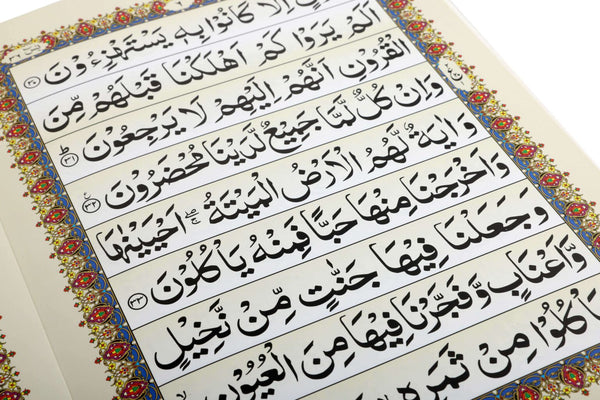 اِلَّا كَانُوْا بِهٖ يَسْتَهْزِءُوْنَ ﴿۳۰﴾
اَلَمْ يَرَوْا كَمْ اَهْلَكْنَا قَبْلَهُمْ مِّنَ
الْقُرُوْنِ اَنَّهُمْ اِلَيْهِمْ لَا يَرْجِعُوْنَ ﴿۳۱﴾ ط
وَاِنْ كُلٌّ لَّمَّا جَمِيْعٌ لَّدَيْنَا مُحْضَرُوْنَ ﴿۳۲﴾
وَاٰيَةٌ لَّهُمُ الْاَرْضُ الْمَيْتَةُ ۖۚ اَحْيَيْنٰهَا
وَاَخْرَجْنَا مِنْهَا حَبًّا فَمِنْهُ يَاْكُلُوْنَ ﴿۳۳﴾
وَجَعَلْنَا فِيْهَا جَنّٰتٍ مِّنْ نَّخِيْلٍ
وَّاَعْنَابٍ وَّفَجَّرْنَا فِيْهَا مِنَ الْعُيُوْنِ
يَاْكُلُوْا مِنْ ثَمَرِهٖ